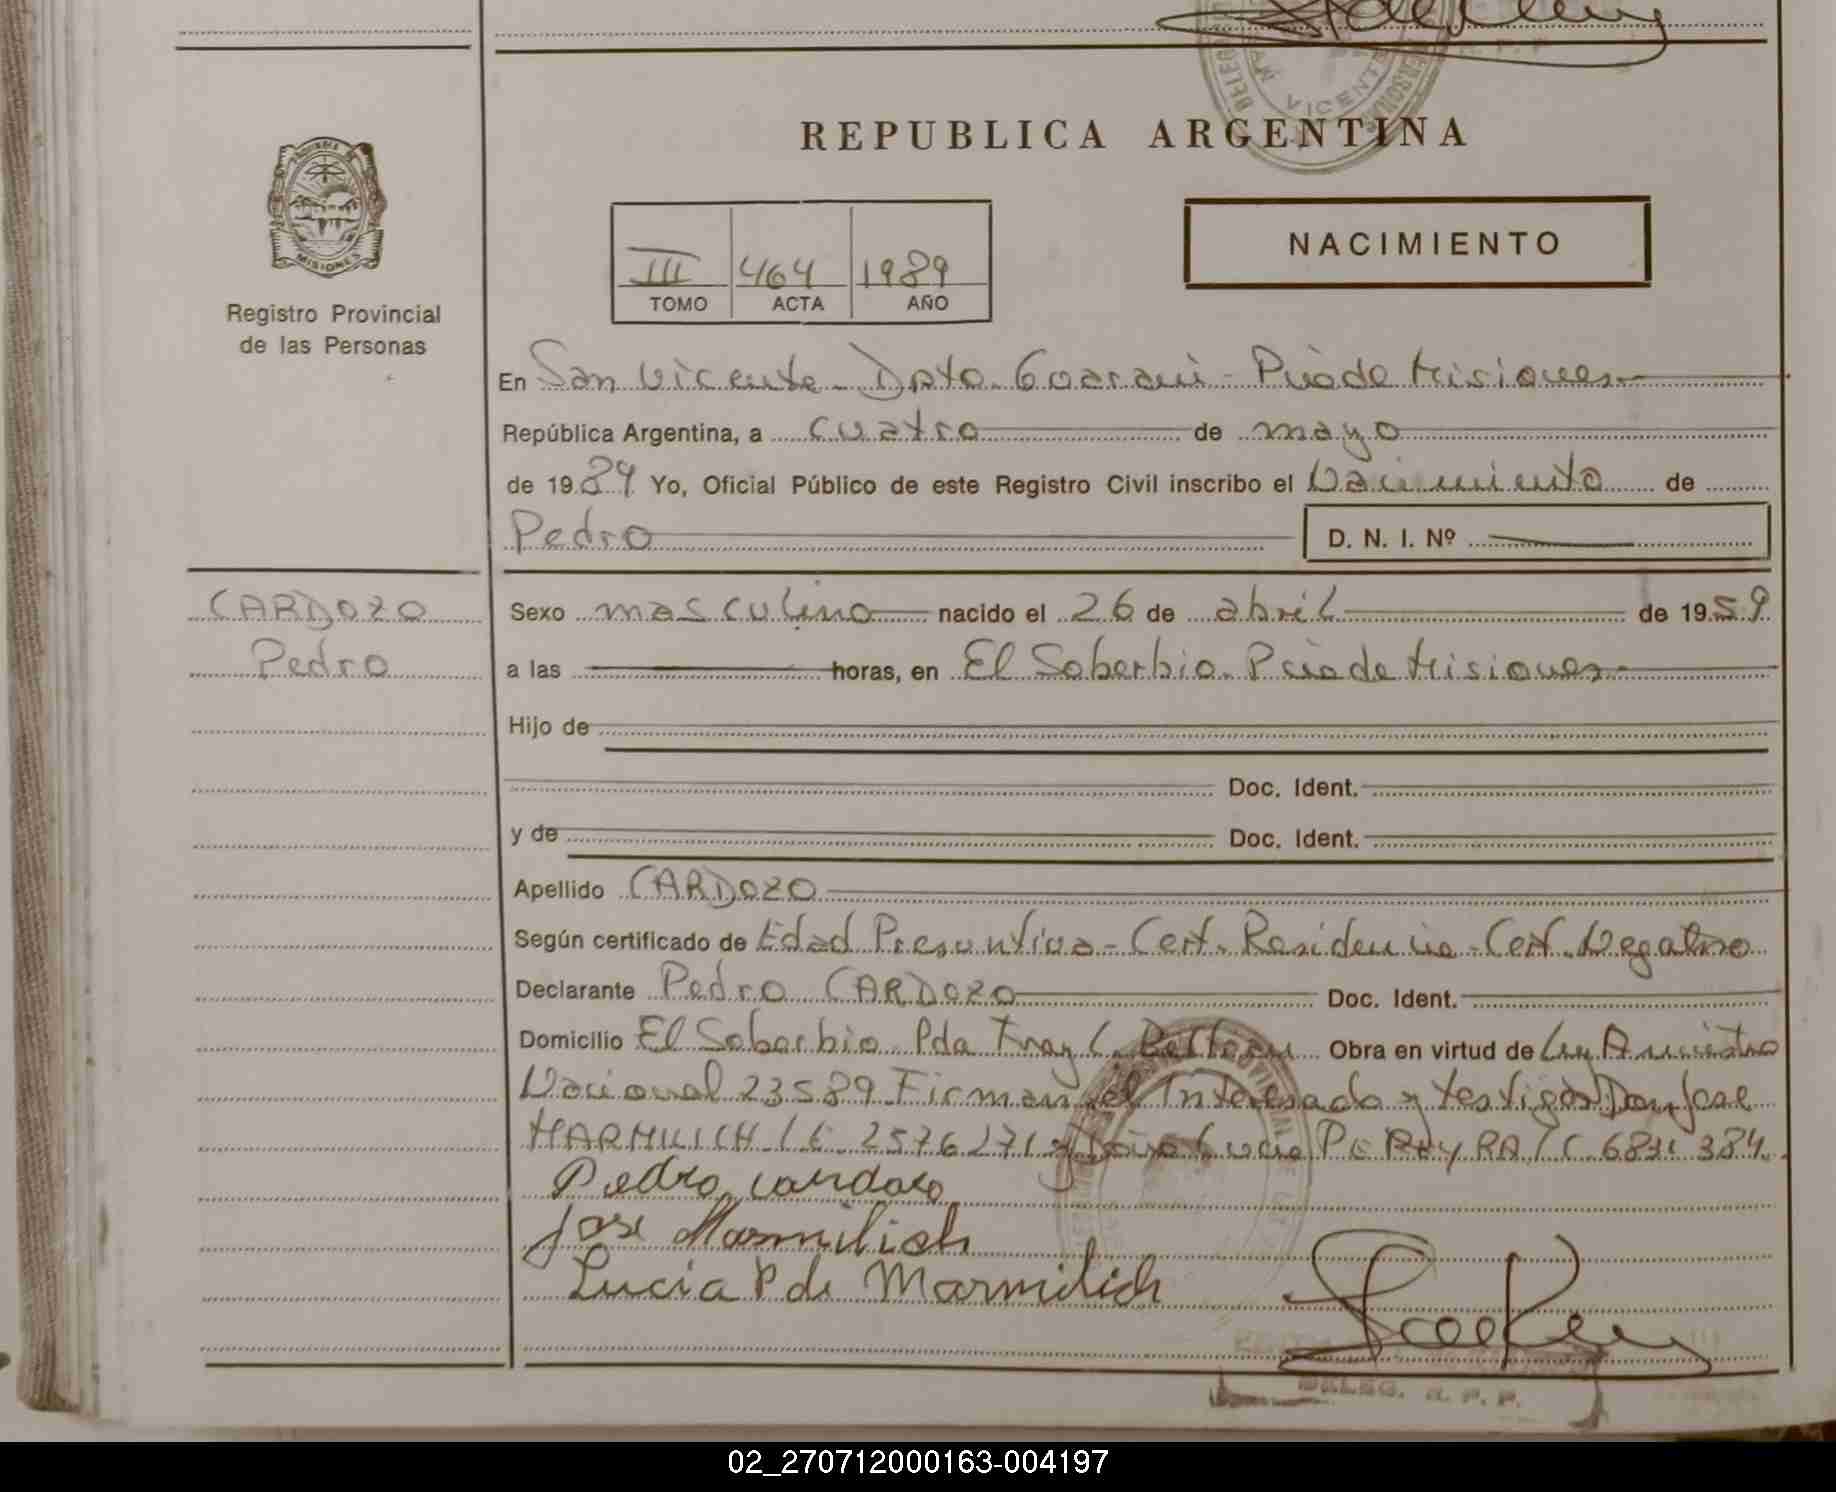 REPUBLICA ARGENTINA
VICENTE
MISIONES
Registro Provincial
de las Personas
III 464 1989
TOMO ACTA AÑO
NACIMIENTO
En San Vicente - Dpto. Guaraní - Pcia de Misiones
República Argentina, a cuatro de mayo
de 1989 Yo, Oficial Público de este Registro Civil inscribo el Nacimiento de
Pedro D. N. I. Nº
CARDOZO
Pedro
Sexo masculino nacido el 26 de abril de 1959
a las horas, en El Soberbio - Pcia de Misiones
Hijo de
Doc. Ident.
y de Doc. Ident.
Apellido CARDOZO
Según certificado de Edad Presuntiva - Cert. Residencia - Cert. Negativo
Declarante Pedro CARDOZO Doc. Ident.
Domicilio El Soberbio Pda Fray L. Beltran Obra en virtud de Ley Amnistia
Nacional 23589 Firman el Interesado y testigos Don Jose
MARMILICH y Lucia PEREYRA
Pedro cardozo
Jose Marmilich
Lucia P de Marmilich
DELEG. R. P. P.
02_270712000163-004197